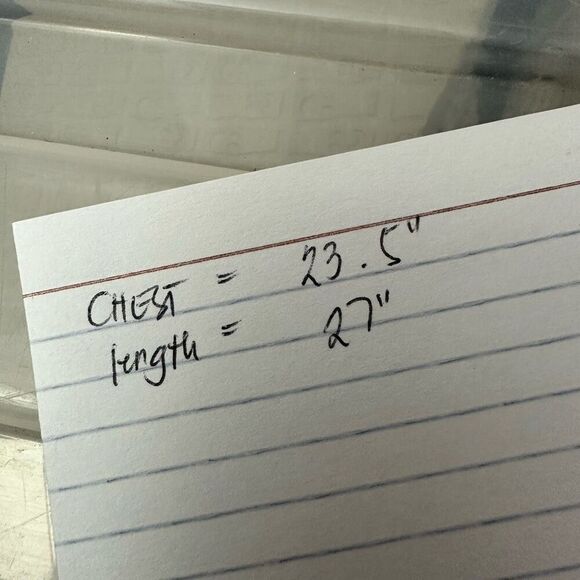 CHEST = 23.5"
length = 27"